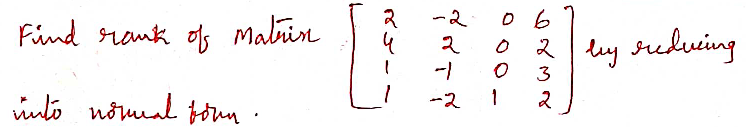 Find rank of Matrix [ 2 -2 0 6
4 2 0 2
1 -1 0 3
1 -2 1 2 ] by reducing
into normal form.